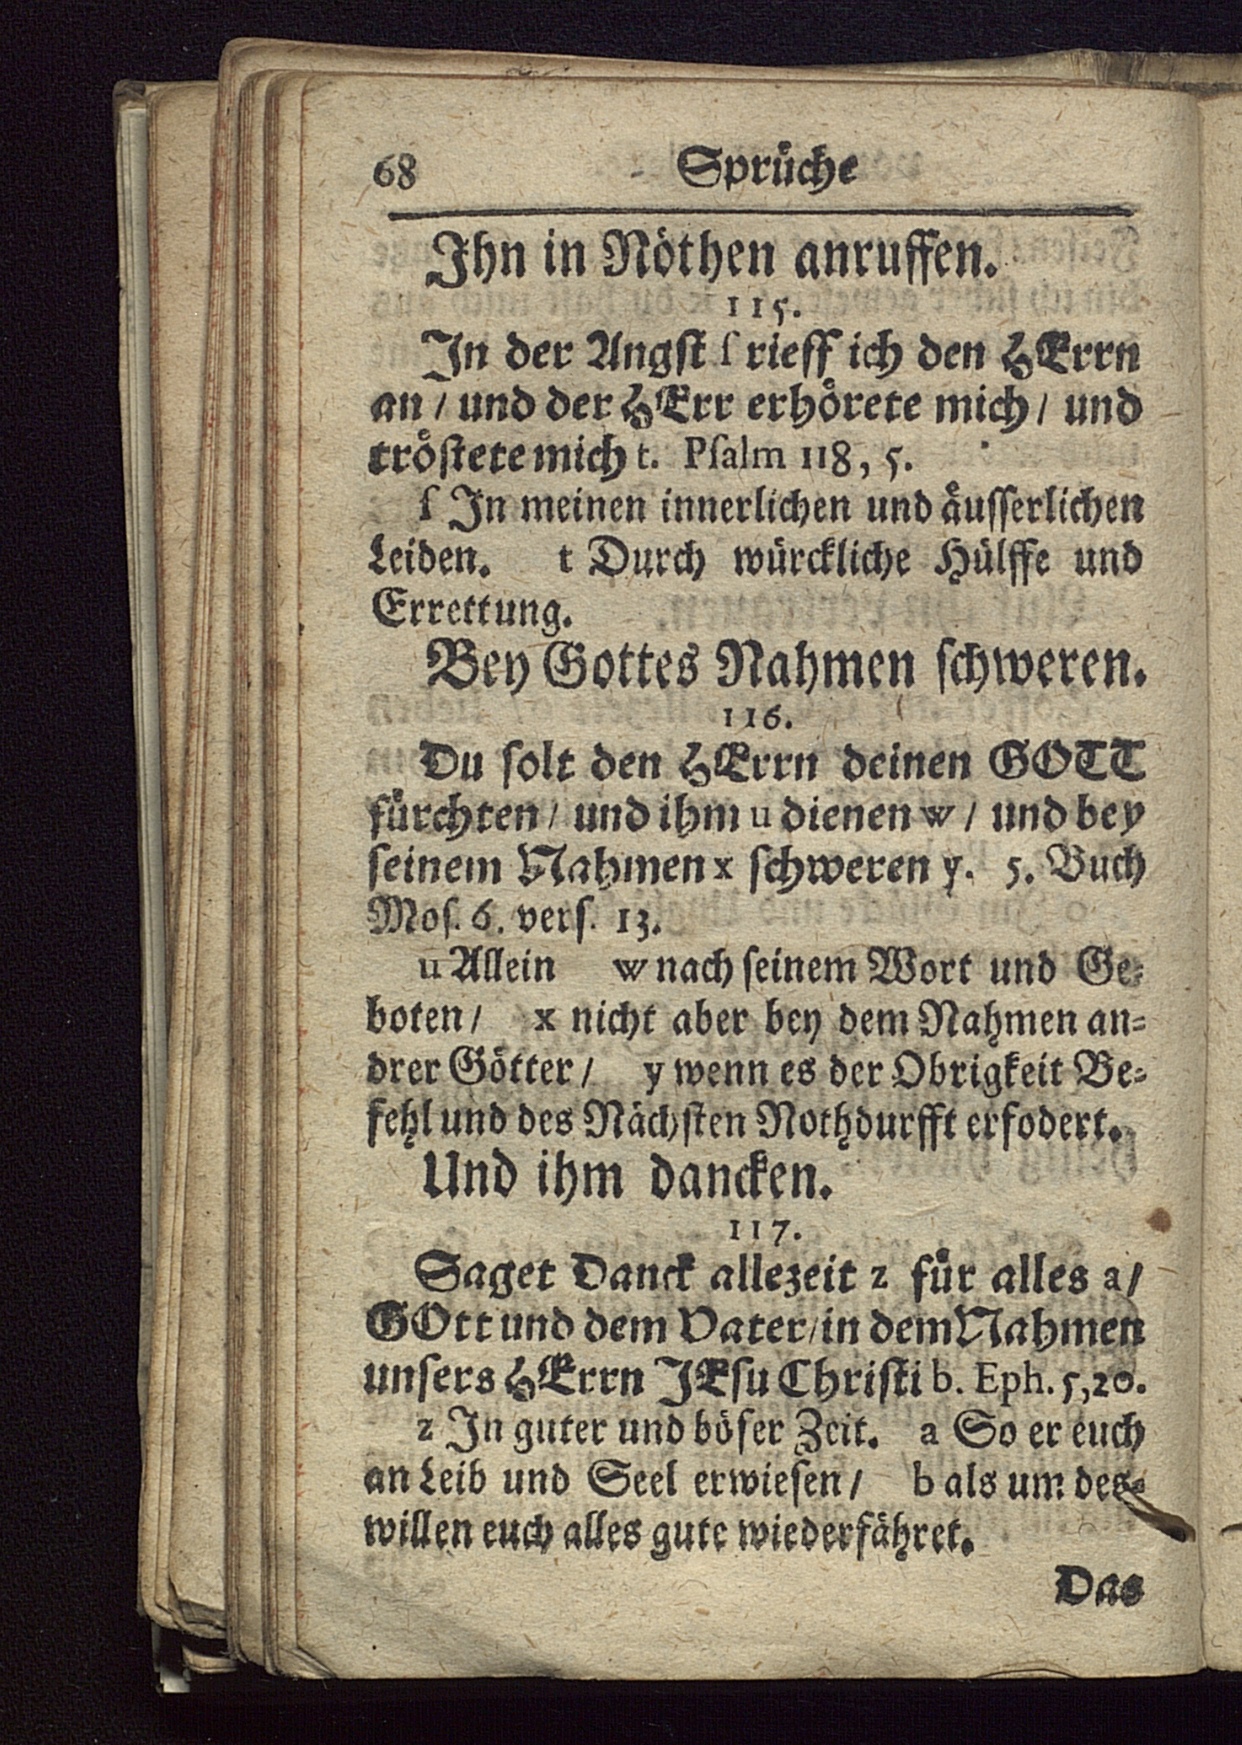 68 Sprüche
Ihn in Nöthen anruffen.
115.
In der Angst ſ rieff ich den HErrn
an / und der HErr erhörete mich / und
tröstete mich t. Pſalm 118, 5.
ſ In meinen innerlichen und äuſſerlichen
Leiden. t Durch würckliche Hülffe und
Errettung.
Bey Gottes Nahmen ſchweren.
116.
Du ſolt den HErrn deinen GOTT
fürchten / und ihm u dienen w / und bey
ſeinem Nahmen x ſchweren y. 5. Buch
Moſ. 6. verſ. 13.
u Allein w nach ſeinem Wort und Ge-
boten / x nicht aber bey dem Nahmen an-
drer Götter / y wenn es der Obrigkeit Be-
fehl und des Nächſten Nothdurfft erfodert.
Und ihm dancken.
117.
Saget Danck allezeit z für alles a /
GOtt und dem Vater / in dem Nahmen
unſers HErrn JEſu Chriſti b. Eph. 5, 20.
z In guter und böſer Zeit. a So er euch
an Leib und Seel erwieſen / b als um des-
willen euch alles gute wiederfähret.
Das